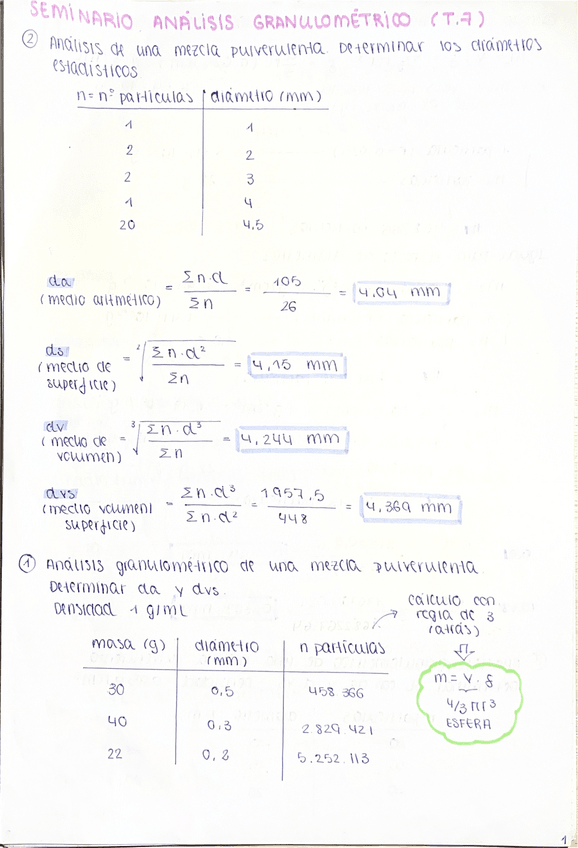 SEMINARIO ANÁLISIS GRANULOMÉTRICO (T.7)
② Análisis de una mezcla pulverulenta. Determinar los diámetros
estadísticos
n = nº partículas diámetro (mm)
1 1
2 2
2 3
1 4
20 4.5
da
(medio aritmético) = Σn·d / Σn = 105 / 26 = 4.04 mm
ds
(medio de
superficie) = ²√(Σn·d² / Σn) = 4,15 mm
dv
(medio de
volumen) = ³√(Σn·d³ / Σn) = 4,244 mm
dvs
(medio volumen/
superficie) = Σn·d³ / Σn·d² = 1957,5 / 448 = 4,369 mm
① Análisis granulométrico de una mezcla pulverulenta.
Determinar da y dvs.
Densidad 1 g/mL
cálculo con
regla de 3
(atrás)
masa (g) diámetro (mm) n partículas
30 0,5 458 366
40 0,3 2.829.421
22 0,2 5.252.113
m = v · δ
4/3 πr³
ESFERA
1